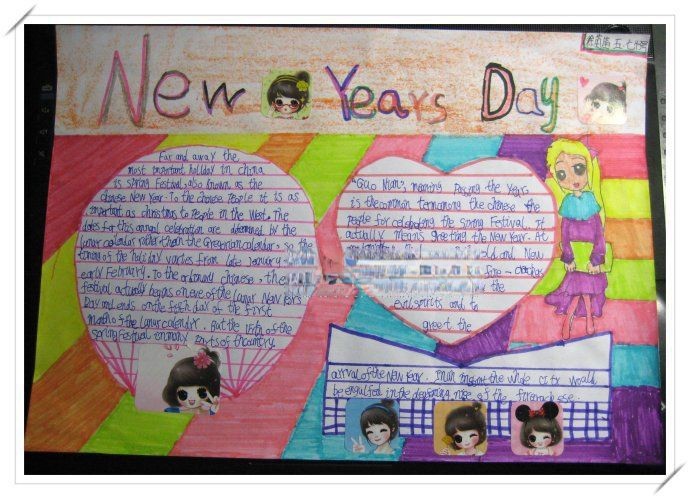 New Years Day
Far and away the
most important holiday in china
is spring Festival, also known as the
chinese New Year. To the chinese people it is as
important as christmas to people in the West. The
dates for this annual celebration are determined by the
lunar calendar rather than the Gregorian calendar, so the
timing of the holiday varies from late January
early February. To the ordinary chinese, the
festival actually begins on eve of the lunar New Year's
Day and ends on the fifth day of the first
month of the lunar calendar. But the 15th of the
spring Festival in many parts of the country.
"Guo Nian", meaning Passing the Years
is the common term among the chinese
people for celebrating the Spring Festival. It
actually means greeting the New Year. At
old and New
fire-
the
evil spirits and to
greet the
arrival of the New Year. In an instant the whole city would
be engulfed in the deafening noise of the